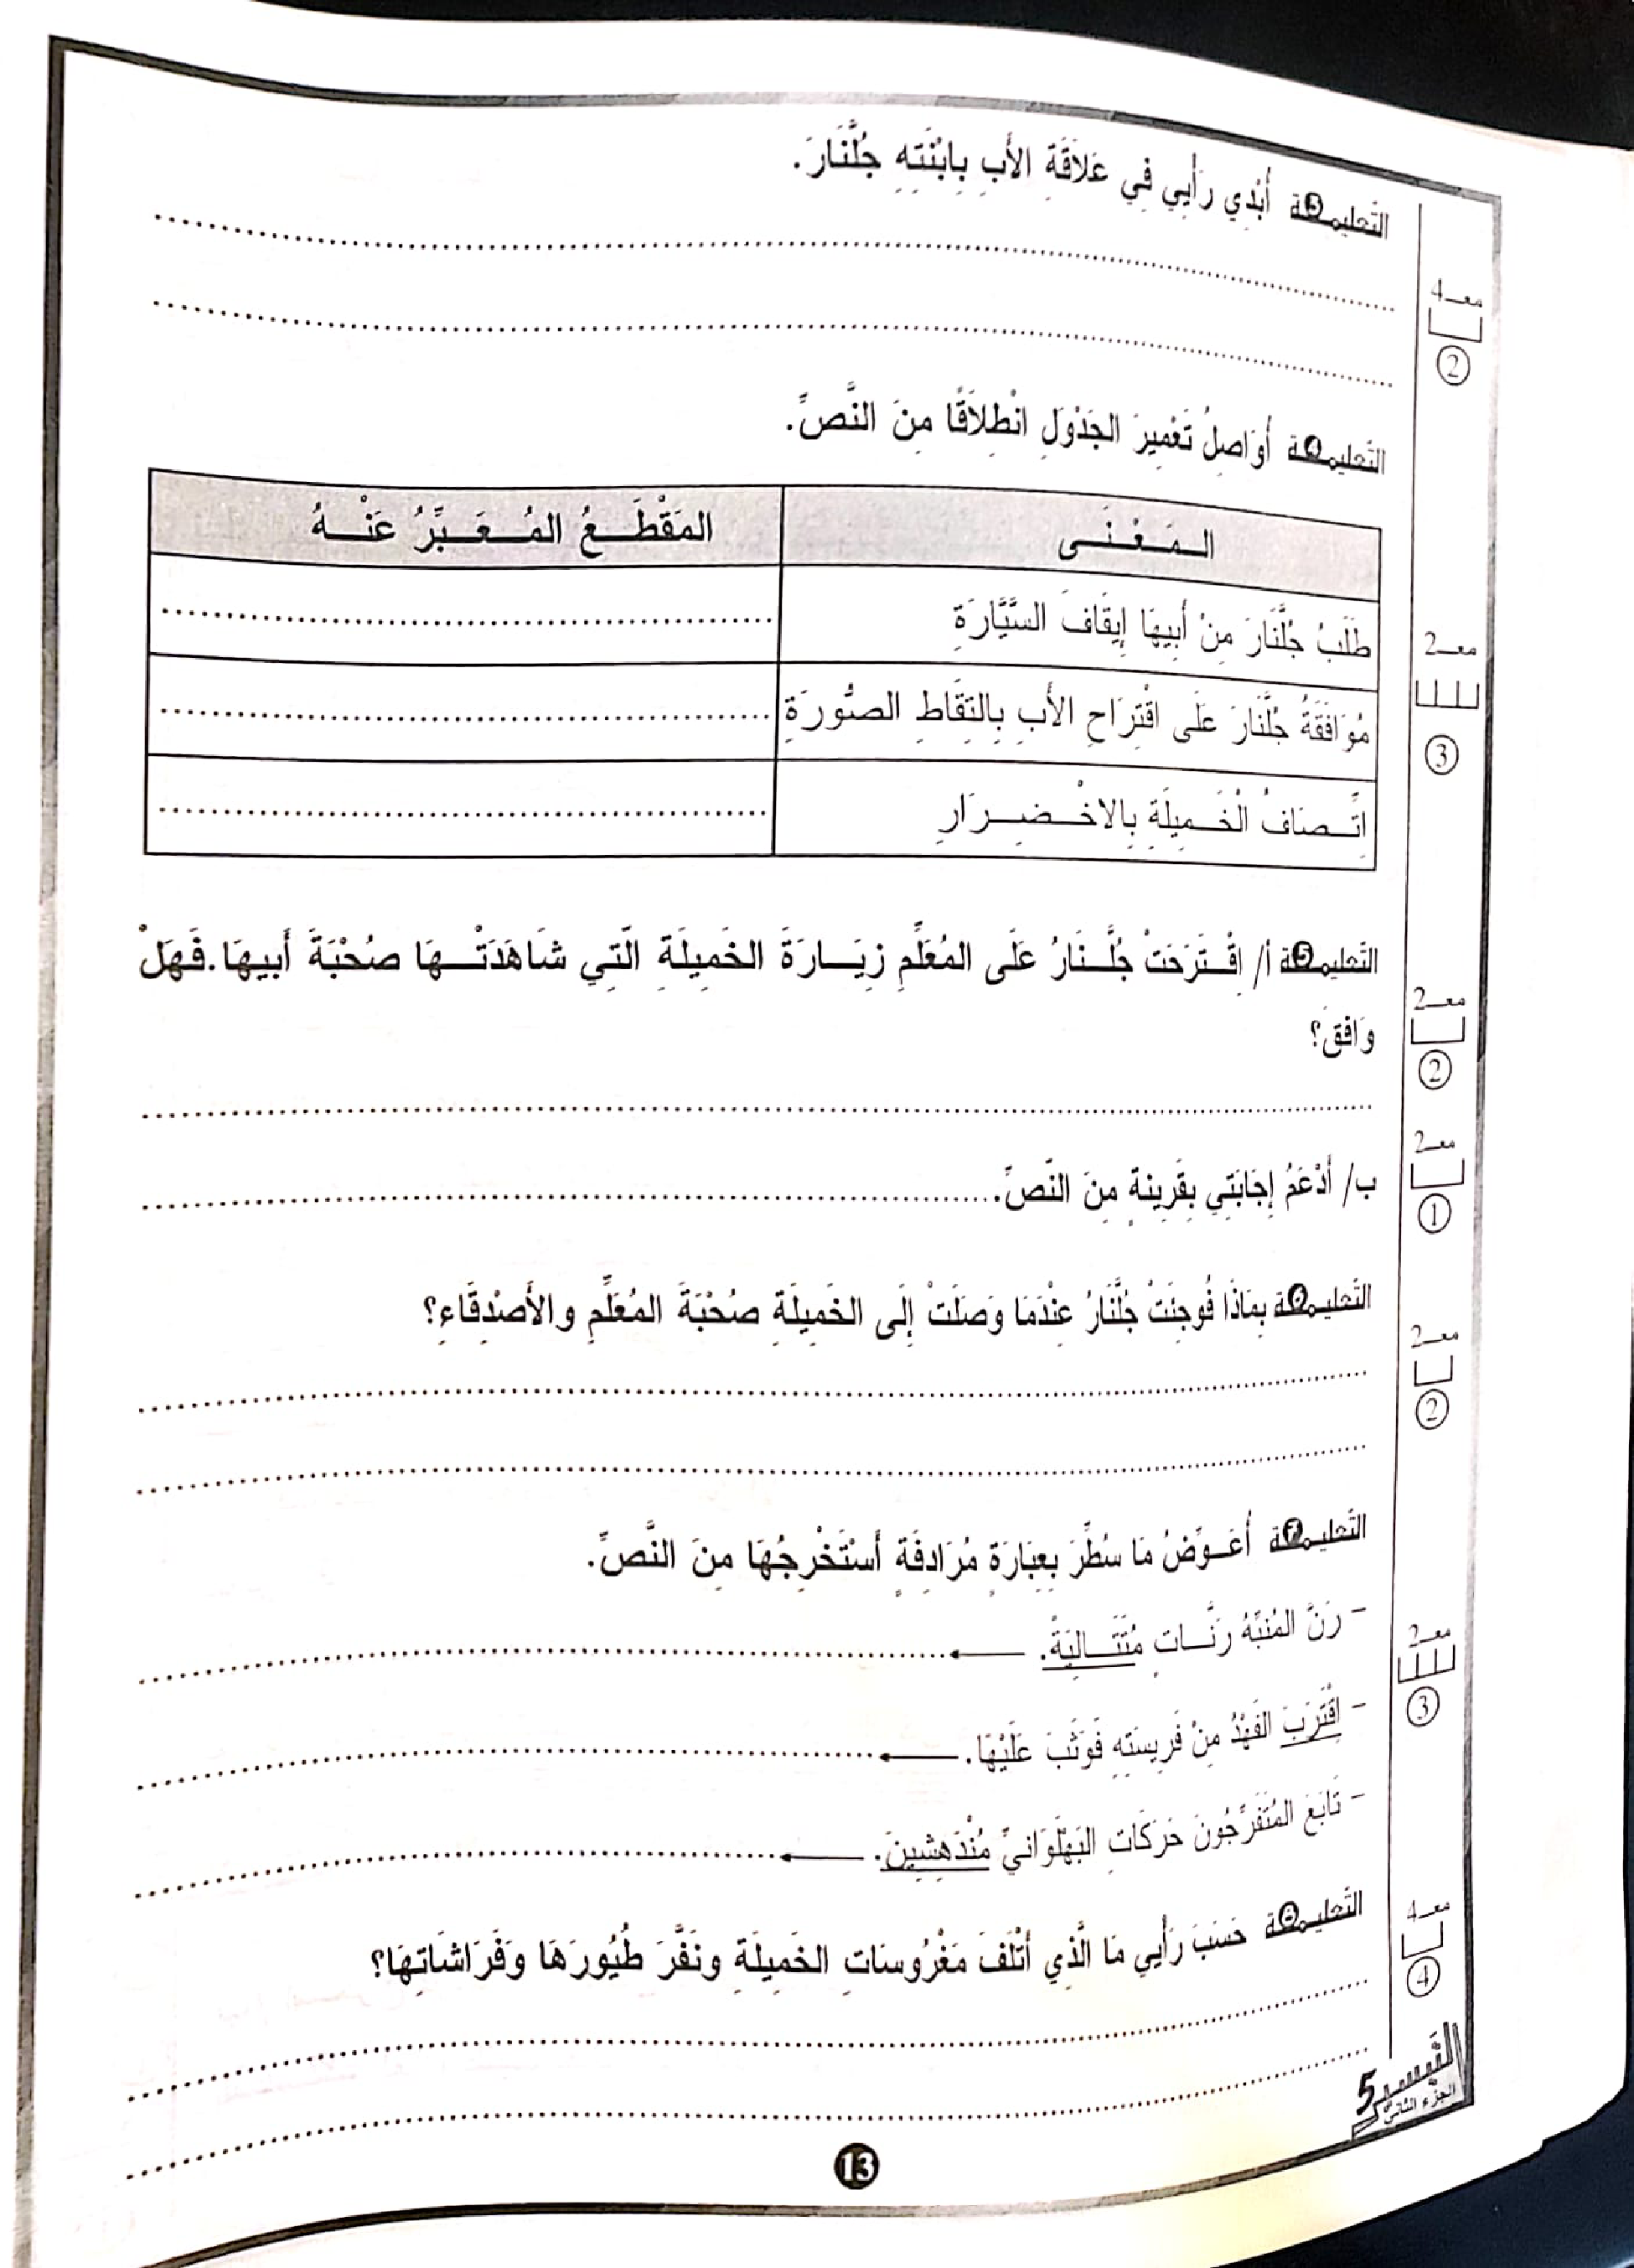 التّعليمـ3ـة أُبْدِي رَأْيِي فِي عَلاَقَةِ الأَبِ بِابْنَتِهِ جُلَّنَارَ.
معـ4
2
التّعليمـ4ـة أُوَاصِلُ تَعْمِيرَ الجَدْوَلِ انْطِلاَقًا مِنَ النَّصِّ.
المَعْنَى
المَقْطَعُ المُعَبِّرُ عَنْهُ
طَلَبُ جُلَّنَارَ مِنْ أَبِيهَا إِيقَافَ السَّيَّارَةِ
مُوَافَقَةُ جُلَّنَارَ عَلَى اقْتِرَاحِ الأَبِ بِالتِقَاطِ الصُّورَةِ
اِتِّصَافُ الْخَمِيلَةِ بِالاخْضِرَارِ
معـ2
3
التّعليمـ5ـة أ/ اِقْتَرَحَتْ جُلَّنَارُ عَلَى المُعَلِّمِ زِيَارَةَ الخَمِيلَةِ الَّتِي شَاهَدَتْهَا صُحْبَةَ أَبِيهَا. فَهَلْ
وَافَقَ؟
معـ2
2
ب/ أَدْعَمُ إِجَابَتِي بِقَرِينةٍ مِنَ النَّصِّ.
معـ2
1
التّعليمـ6ـة بِمَاذَا فُوجِئَتْ جُلَّنَارُ عِنْدَمَا وَصَلَتْ إِلَى الخَمِيلَةِ صُحْبَةَ المُعَلِّمِ والأَصْدِقَاءِ؟
معـ2
2
التّعليمـ7ـة أُعَوِّضُ مَا سُطِّرَ بِعِبَارَةٍ مُرَادِفَةٍ أَسْتَخْرِجُهَا مِنَ النَّصِّ.
- رَنَّ المُنَبِّهُ رَنَّاتٍ مُتَتَالِيَةً.
- اِقْتَرَبَ الفَهْدُ مِنْ فَرِيسَتِهِ فَوَثَبَ عَلَيْهَا.
- تَابَعَ المُتَفَرِّجُونَ حَرَكَاتِ البَهْلَوَانيِّ مُنْدَهِشِينَ.
معـ2
3
التّعليمـ8ـة حَسَبَ رَأْيِي مَا الَّذِي أَتْلَفَ مَغْرُوسَاتِ الخَمِيلَةِ ونَفَّرَ طُيُورَهَا وَفَرَاشَاتِهَا؟
معـ4
4
التيسير 5
الجزء الثاني
13